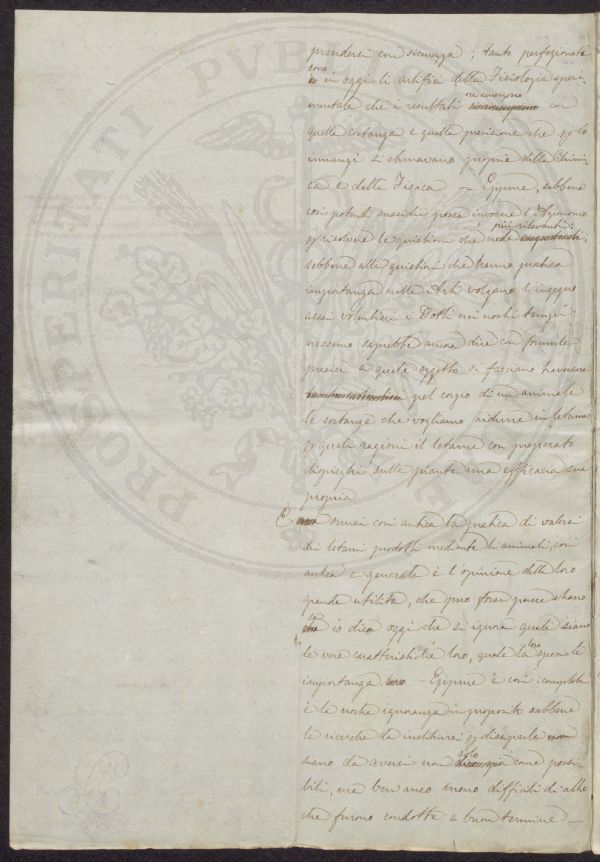 PROSPERITATI PVBLICAE
prendersi con sicurezza; tanto perfezionati
sono
in oggi li artifici della Fisiologia speri-
ne emergono
mentale che i resultati con
quella costanza e quella precisione che p lo
innanzi si stimavano proprie della Chimi-
ca e della Fisica — Eppure, sebbene
così potenti sussidii possa invocare l'Agronomo
più rilevanti;
p risolvere le quistioni che crede
sebbene alle quistioni che hanno pratica
importanza nelle Arti volgano l'ingegno
assai volentieri i Dotti nei nostri tempi:
nessuno saprebbe ancora dire con formule
precise a quale oggetto si facciano
pel corpo di un animale
le sostanze che vogliamo ridurre in letame,
p quali ragioni il letame così preparato
dispieghi sulle piante una efficacia sua
propria
È omai così antica la pratica di valersi
dei letami prodotti mediante li animali, così
antica e generale è l'opinione della loro
grande utilità, che può forse parere strano
se io dico oggi che si ignora quali siano
le vere caratteristiche loro, quale la loro speciale
importanza. — Eppure è così: completa
è la nostra ignoranza in proposito sebbene
le ricerche da instituirsi p dissiparla
solo
siano da aversi non come possi-
bili, ma ben anco meno difficili di altre
che furono condotte a buon termine —